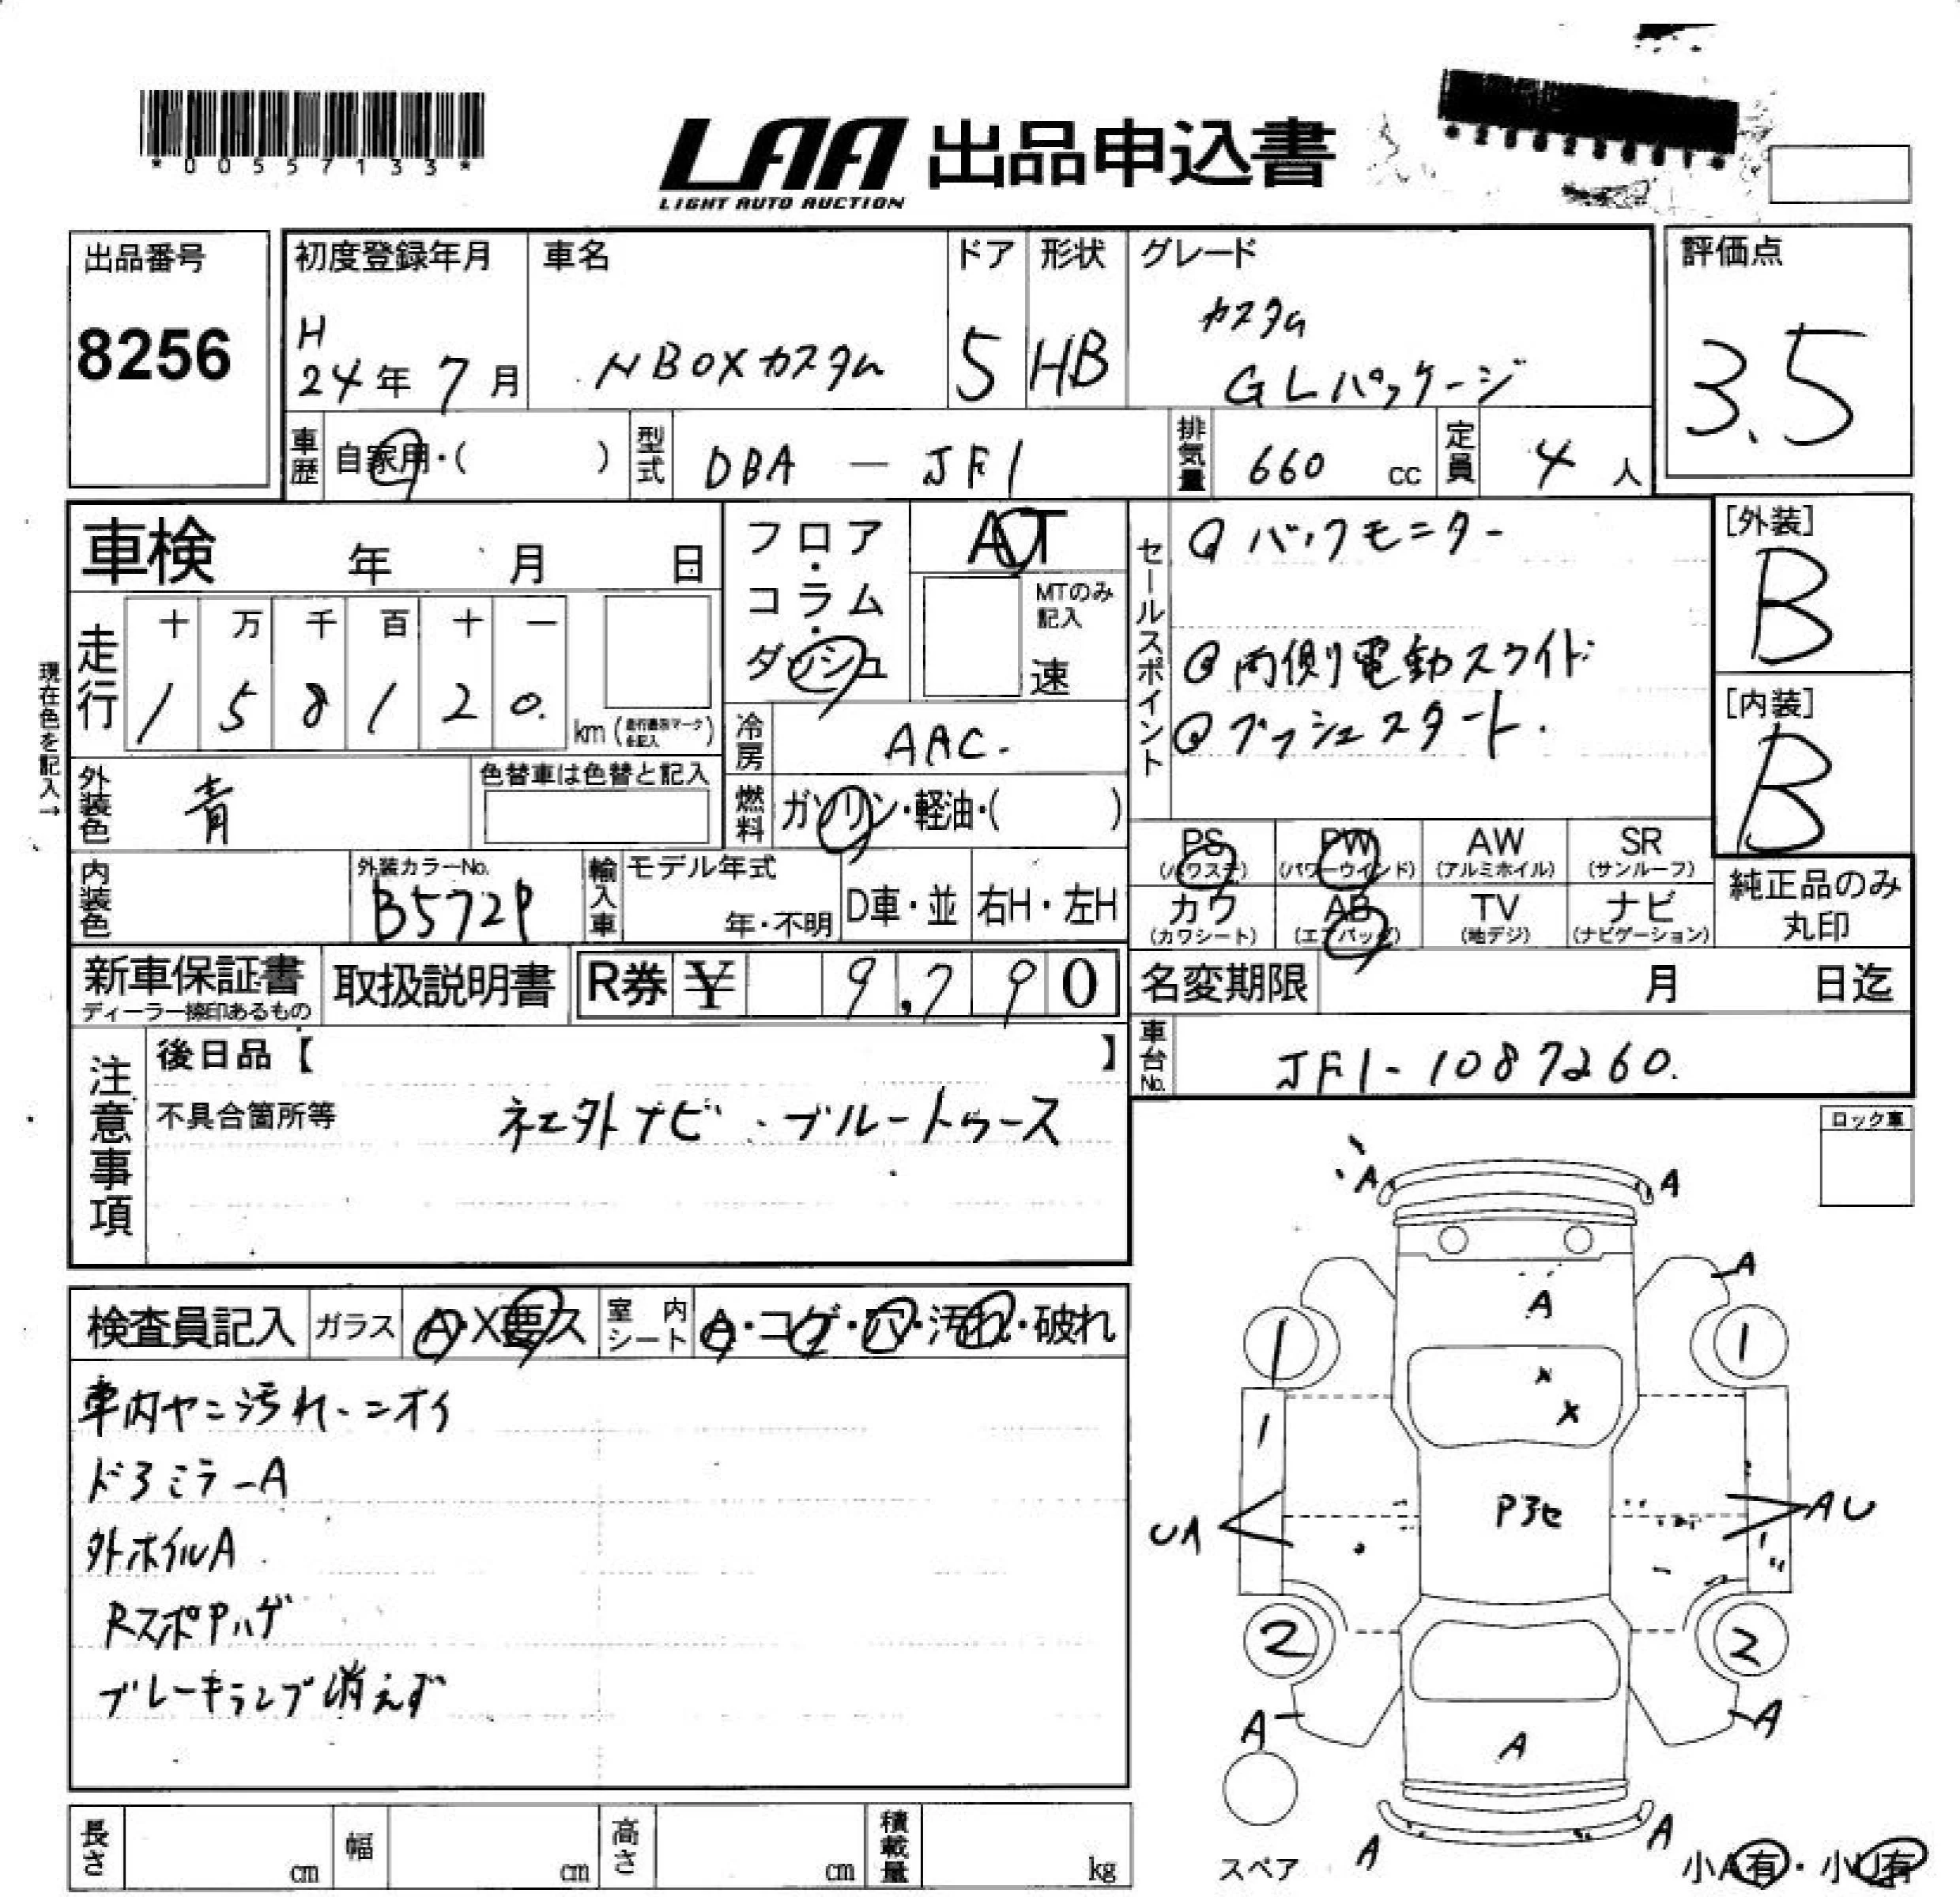 *00557133*
LAA 出品申込書
LIGHT AUTO AUCTION
出品番号
8256
初度登録年月
H
24年 7月
車名
NBOXカスタム
ドア
5
形状
HB
グレード
カスタム
GLパッケージ
評価点
3.5
車歴 自家用・( )
型式 DBA - JF1
排気量 660 cc
定員 4 人
車検 年 月 日
フロア・コラム・ダッシュ
AT
MTのみ記入
速
セールスポイント
@ バックモニター
@ 両側電動スライド
@ プッシュスタート
[外装]
B
[内装]
B
現在色を記入→
走行
十 万 千 百 十 一
1 5 8 1 2 0
km
冷房 AAC
外装色 青
色替車は色替と記入
燃料 ガソリン・軽油・( )
PS (パワステ)
PW (パワーウインド)
AW (アルミホイル)
SR (サンルーフ)
カワ (カワシート)
AB (エアバッグ)
TV (地デジ)
ナビ (ナビゲーション)
純正品のみ
丸印
内装色
外装カラーNo.
B572P
輸入車
モデル年式
年・不明
D車・並
右H・左H
新車保証書
ディーラー捺印あるもの
取扱説明書
R券 ¥ 9,790
名変期限 月 日迄
車台No. JF1-1087260
注意事項
後日品【 】
不具合箇所等
社外ナビ、ブルートゥース
ロック車
検査員記入
ガラス A・X要ス
室内シート A・コゲ・穴・汚れ・破れ
車内ヤニ汚れ、ニオイ
ドアミラーA
外ホイルA
RスポPハゲ
ブレーキランプ消えず
A A
A
A
1 1
X
X
1
UA
Pアセ
AU
2 2
A A
A
A A
スペア
小A有・小U有
長さ cm
幅 cm
高さ cm
積載量 kg